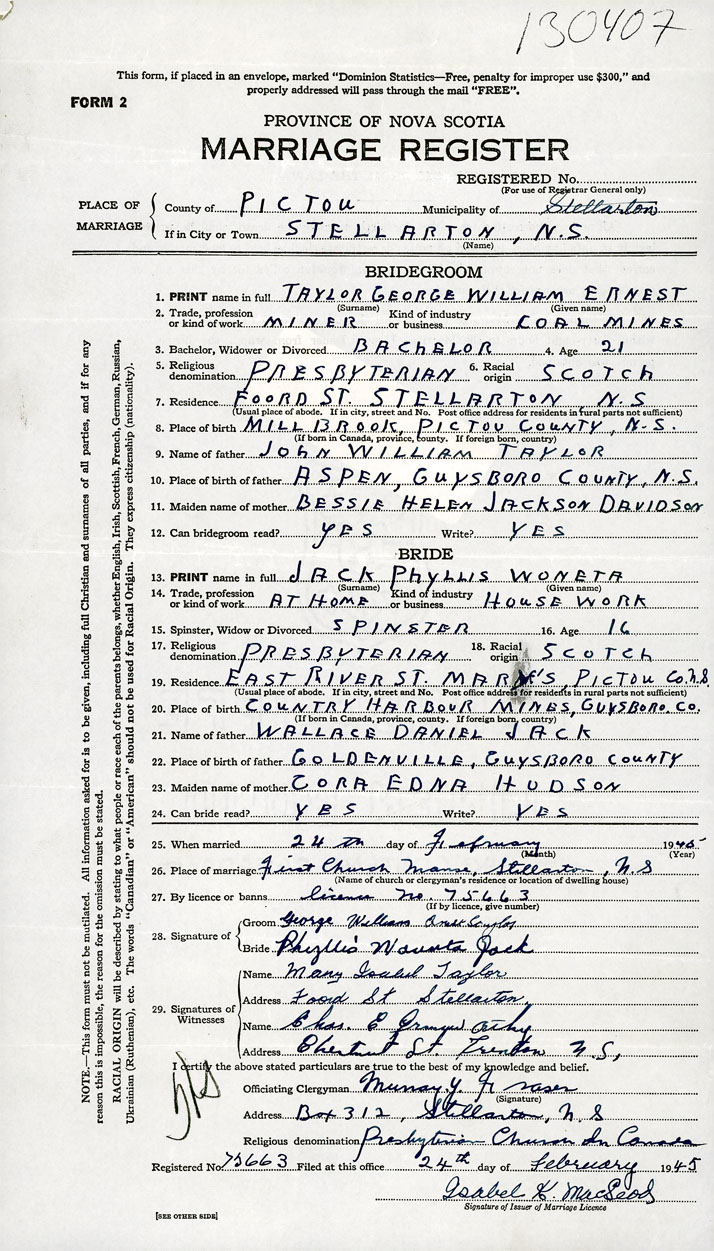 130407
This form, if placed in an envelope, marked "Dominion Statistics—Free, penalty for improper use $300," and
properly addressed will pass through the mail "FREE".
FORM 2
PROVINCE OF NOVA SCOTIA
MARRIAGE REGISTER
REGISTERED No.
(For use of Registrar General only)
PLACE OF MARRIAGE
County of PICTOU Municipality of Stellarton
If in City or Town STELLARTON, N.S.
(Name)
BRIDEGROOM
1. PRINT name in full TAYLOR GEORGE WILLIAM ERNEST
(Surname) (Given name)
2. Trade, profession or kind of work MINER Kind of industry or business COAL MINES
3. Bachelor, Widower or Divorced BACHELOR 4. Age 21
5. Religious denomination PRESBYTERIAN 6. Racial origin SCOTCH
7. Residence FOORD ST. STELLARTON, N.S
(Usual place of abode. If in city, street and No. Post office address for residents in rural parts not sufficient)
8. Place of birth MILL BROOK, PICTOU COUNTY, N.S.
(If born in Canada, province, county. If foreign born, country)
9. Name of father JOHN WILLIAM TAYLOR
10. Place of birth of father ASPEN, GUYSBORO COUNTY, N.S.
11. Maiden name of mother BESSIE HELEN JACKSON DAVIDSON
12. Can bridegroom read? YES Write? YES
BRIDE
13. PRINT name in full JACK PHYLLIS WONETA
(Surname) (Given name)
14. Trade, profession or kind of work AT HOME Kind of industry or business HOUSE WORK
15. Spinster, Widow or Divorced SPINSTER 16. Age 16
17. Religious denomination PRESBYTERIAN 18. Racial origin SCOTCH
19. Residence EAST RIVER ST. MARY'S, PICTOU CO. N.S
(Usual place of abode. If in city, street and No. Post office address for residents in rural parts not sufficient)
20. Place of birth COUNTRY HARBOUR MINES, GUYSBORO. CO.
(If born in Canada, province, county. If foreign born, country)
21. Name of father WALLACE DANIEL JACK
22. Place of birth of father GOLDENVILLE, GUYSBORO COUNTY
23. Maiden name of mother CORA EDNA HUDSON
24. Can bride read? YES Write? YES
25. When married 24th day of February 1945
(Month) (Year)
26. Place of marriage First Church Manse, Stellarton, N.S
(Name of church or clergyman's residence or location of dwelling house)
27. By licence or banns licence No. 75663
(If by licence, give number)
28. Signature of
Groom George William Ernest Taylor
Bride Phyllis Waunita Jack
29. Signatures of Witnesses
Name Mary Isabel Taylor
Address Foord St Stellarton
Name Chas. E
Address Chestnut St. Trenton N.S,
I certify the above stated particulars are true to the best of my knowledge and belief.
Officiating Clergyman Murray Y. Fraser
(Signature)
Address Box 312, Stellarton, N.S
Religious denomination Presbyterian Church In Canada
Registered No. 75663 Filed at this office 24th day of February 1945
Isabel K. MacLeod
Signature of Issuer of Marriage Licence
[SEE OTHER SIDE]
NOTE.—This form must not be mutilated. All information asked for is to be given, including full Christian and surnames of all parties, and if for any
reason this is impossible, the reason for the omission must be stated.
RACIAL ORIGIN will be described by stating to what people or race each of the parents belongs, whether English, Irish, Scottish, French, German, Russian,
Ukrainian (Ruthenian), etc. The words "Canadian" or "American" should not be used for Racial Origin. They express citizenship (nationality).